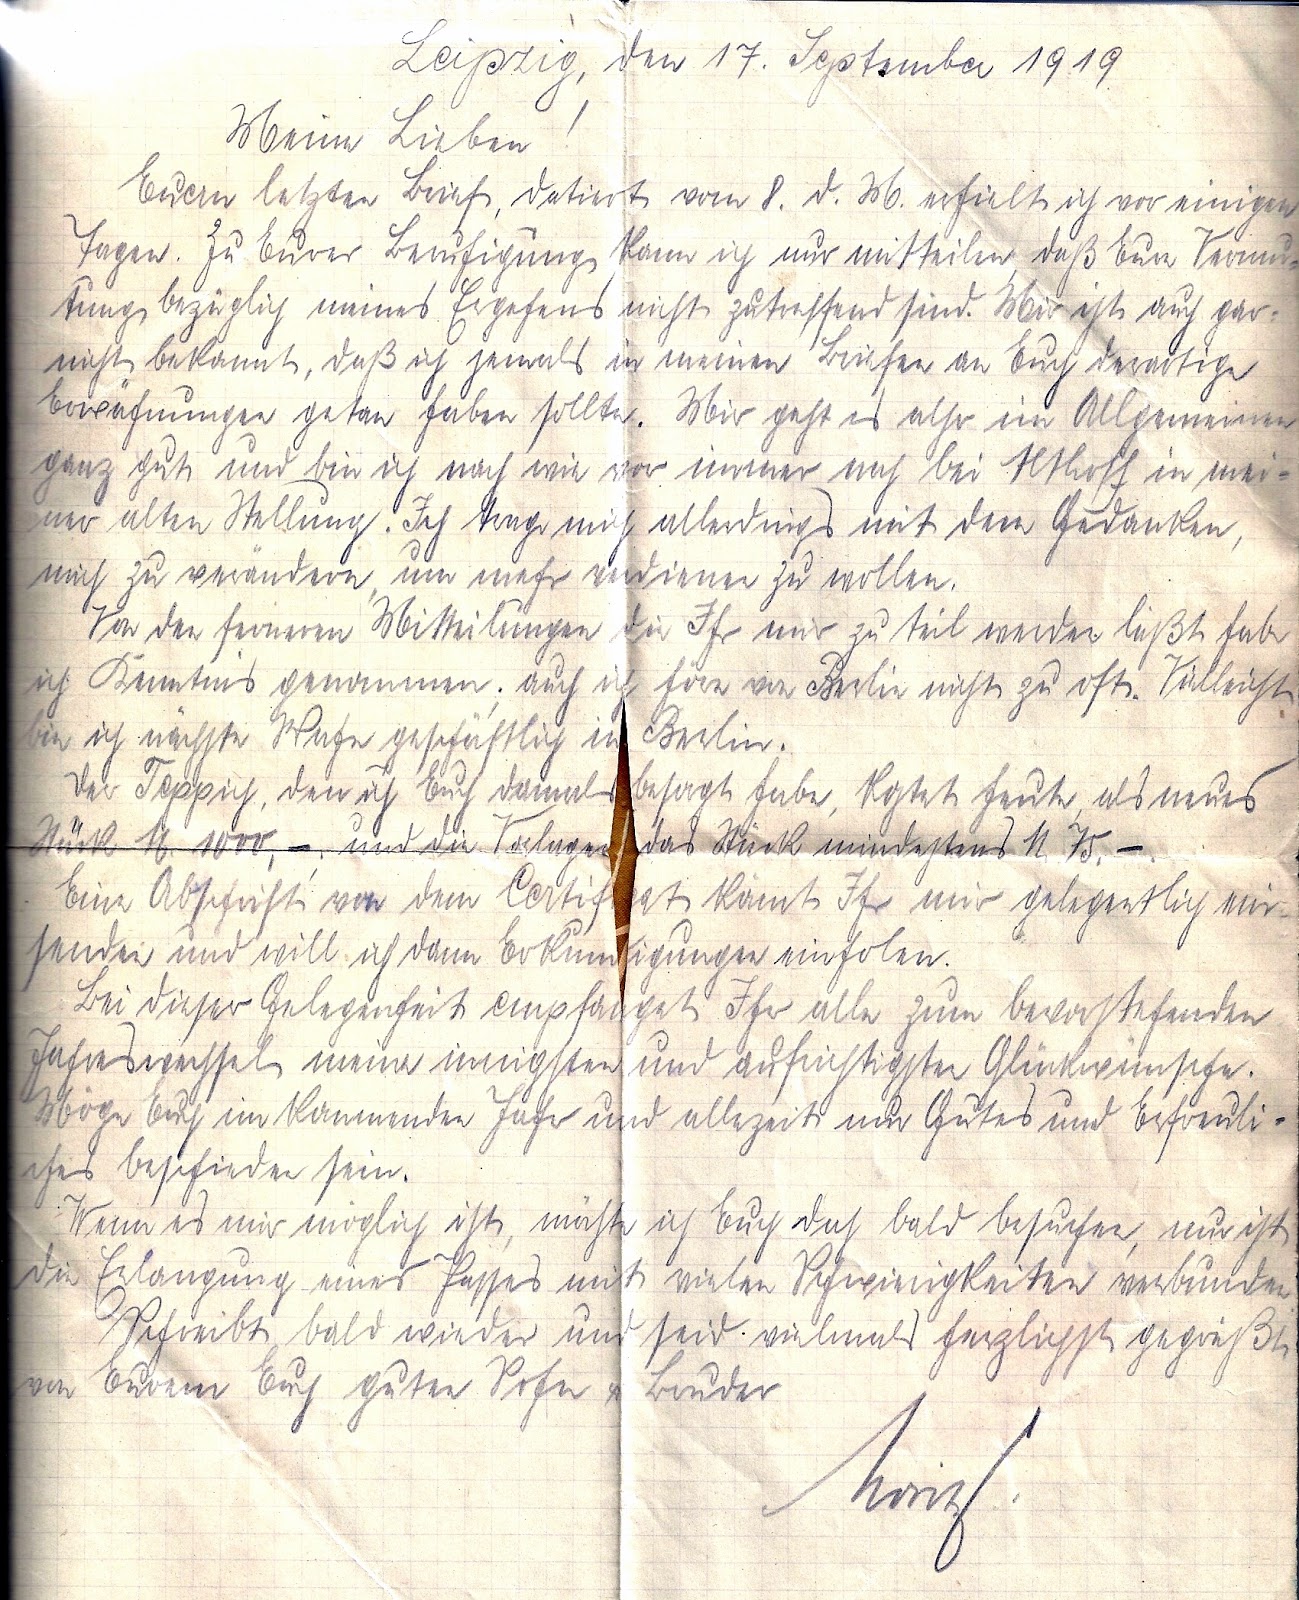 Leipzig, den 17. September 1919
Meine Lieben!
Euern letzten Brief, datiert vom 8. d. M. erhielt ich vor einigen
Tagen. Zu Eurer Beruhigung kann ich nur mitteilen, daß Eure Vermu-
tung bezüglich meines Ergehens nicht zutreffend sind. Mir ist auch gar-
nicht bekannt, daß ich jemals in meinen Briefen an Euch derartige
Erwähnungen getan haben sollte. Mir geht es aber im Allgemeinen
ganz gut und bin ich nach wie vor immer noch bei Althoff in mei-
ner alten Stellung. Ich trage mich allerdings mit dem Gedanken,
mich zu verändern, um mehr verdienen zu wollen.
Von den ferneren Mitteilungen die Ihr mir zu teil werden laßt habe
ich Kenntnis genommen; auch ich höre von Berlin nicht zu oft. Vielleicht
bin ich nächste Woche geschäftlich in Berlin.
Der Teppich, den ich Euch damals besorgt habe, kostet heute, als neues
Stück M. 1000,-. und die Vorlagen das Stück mindestens M. 75.-.
Eine Abschrift von dem Certifikat könnt Ihr mir gelegentlich ein-
senden und will ich dann Erkundigungen einholen.
Bei dieser Gelegenheit empfanget Ihr alle zum bevorstehenden
Jahreswechsel meine innigsten und aufrichtigsten Glückwünsche.
Möge Euch im kommenden Jahr und allezeit nur Gutes und Erfreuli-
ches beschieden sein.
Wenn es mir möglich ist, möchte ich Euch doch bald besuchen, nur ist
die Erlangung eines Passes mit vielen Schwierigkeiten verbunden.
Schreibt bald wieder und seid vielmals herzlichst gegrüßt
von Eurem Euch guten Sohn & Bruder
Moritz.